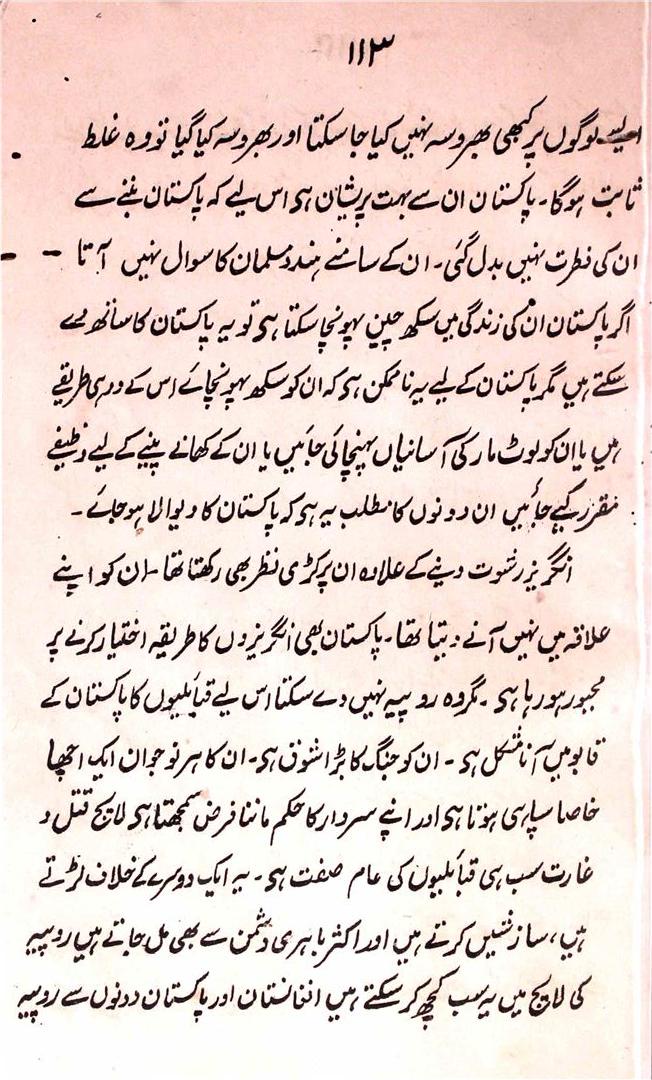 ۱۱۳
ایسے لوگوں پر کبھی بھروسہ نہیں کیا جا سکتا اور بھروسہ کیا گیا تو وہ غلط
ثابت ہوگا۔ پاکستان ان سے بہت پریشان ہی اس لیے کہ پاکستان بننے سے
ان کی فطرت نہیں بدل گئی۔ ان کے سامنے ہندو مسلمان کا سوال نہیں آتا ۔
اگر پاکستان ان کی زندگی میں سکھ چین پہونچا سکتا ہی تو یہ پاکستان کا ساتھ دے
سکتے ہیں مگر پاکستان کے لیے یہ ناممکن ہی کہ ان کو سکھ پہونچائے اس کے دو ہی طریقے
ہیں یا ان کو لوٹ مار کی آسانیاں پہنچائی جائیں یا ان کے کھانے پینے کے لیے وظیفے
مقرر کیے جائیں ان دونوں کا مطلب یہ ہی کہ پاکستان کا دیوالا ہو جائے۔
انگریز رشوت دینے کے علاوہ ان پر کڑی نظر بھی رکھتا تھا۔ ان کو اپنے
علاقہ میں نہیں آنے دیتا تھا۔ پاکستان بھی انگریزوں کا طریقہ اختیار کرنے پر
مجبور ہو رہا ہی۔ مگر وہ روپیہ نہیں دے سکتا اس لیے قبائلیوں کا پاکستان کے
قابو میں آنا مشکل ہی۔ ان کو جنگ کا بڑا شوق ہی۔ ان کا ہر نوجوان ایک اچھا
خاصا سپاہی ہوتا ہی اور اپنے سردار کا حکم ماننا فرض سمجھتا ہی لالچ قتل و
غارت سب ہی قبائلیوں کی عام صفت ہی۔ یہ ایک دوسرے کے خلاف لڑتے
ہیں، سازشیں کرتے ہیں اور اکثر باہری دشمن سے بھی مل جاتے ہیں روپیہ
کی لالچ میں یہ سب کچھ کر سکتے ہیں افغانستان اور پاکستان دونوں سے روپیہ